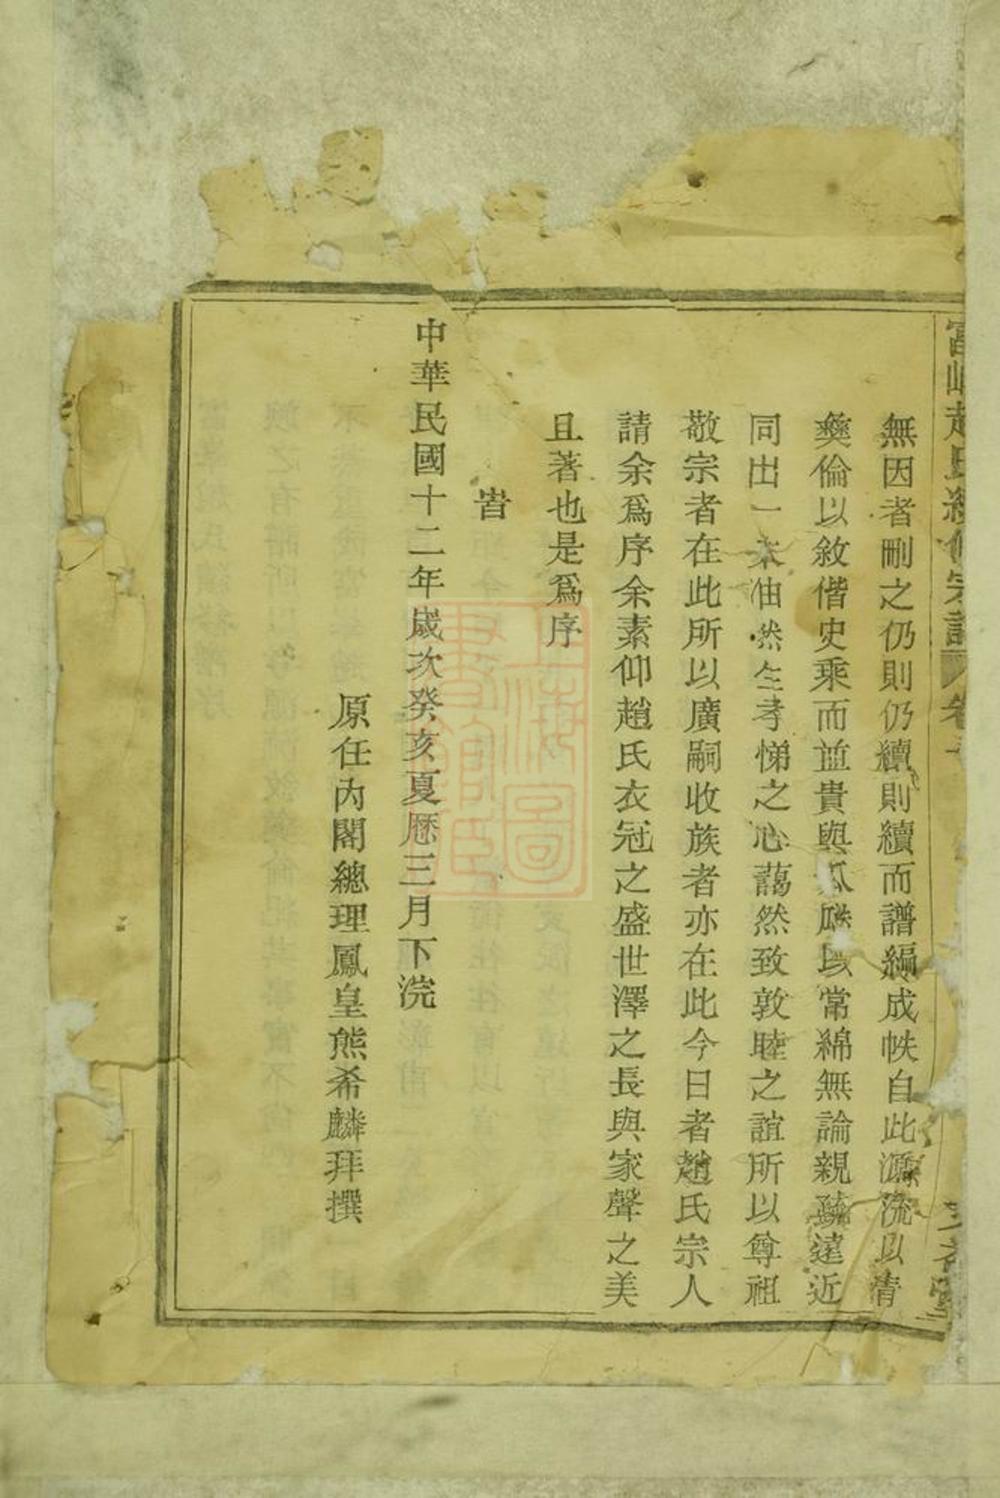 趙氏續修宗譜 卷
無因者刪之仍則仍續則續而譜編成帙自此源流以清
彝倫以敘偕史乘而並貴與瓜瓞以常綿無論親疏遠近
同出一本油然生孝悌之心藹然致敦睦之誼所以尊祖
敬宗者在此所以廣嗣收族者亦在此今日者趙氏宗人
請余爲序余素仰趙氏衣冠之盛世澤之長與家聲之美
且著也是爲序
旹
中華民國十二年歲次癸亥夏歷三月下浣
原任內閣總理鳳皇熊希麟拜撰
上海圖書館藏